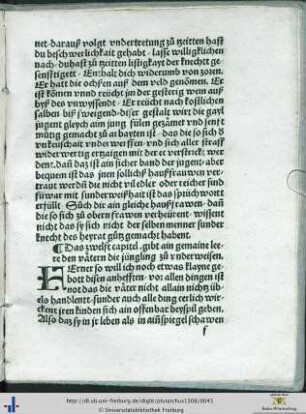 net darauß volgt vnderttetung zů zeitten hast
du beschwerlichkait gehabt. lasse williglichen
nach. du hast zů zeitten listigkayt der knecht ge
senftigett. Enthalt dich widerumb von zoren.
Er hatt die ochssen auß dem veld genömen. Er
ist kömen vnnd reücht jm der gesterig wein auß
hyß des vnwyssendt. Er reücht nach kostlichen
salben biß sweigend. diser gestalt wirt die gayl
jugent gleych ain jung fülen gezämet vnd senft
mütig gemacht zů arbayten ist. das die so sich d
vnkeuschait vnderwerffen. vnd sich aller straff
widerwertig erzaigen mit der ee verstrickt wer
dent. dañ daz ist ain sicher band der jugent. aber
bequem ist das jnen sollich haußfrawen ver
traut werdñ die nicht vil edler oder reicher sind
fürwar mit sunder weißhait ist das sprüchwort
erfüllt. Süch dir ain gleiche haußfrawen. dañ
die so sich zů obern frawen verheürent. wissent
nicht das sy sich nicht der selben menner sunder
knecht des heyrat gůtz gemacht habent.
¶ Das zwelft capitel. gibt ain gemaine lee
re den vätern die jüngling zů vnderweisen.
FErner so will ich noch etwas klayne ge
bott disen anhefften. vor allen dingen ist
not das die väter nicht allain nichtz üb
els handlent. sunder auch alle ding erlich wir
ckent jren kinden sich ain offenbar beyspil geben.
Also daz sy in jr leben als in ain spiegel schawen
f
http://dl.ub.uni-freiburg.de/diglit/plutarchus1508/0045
© Universitätsbibliothek Freiburg